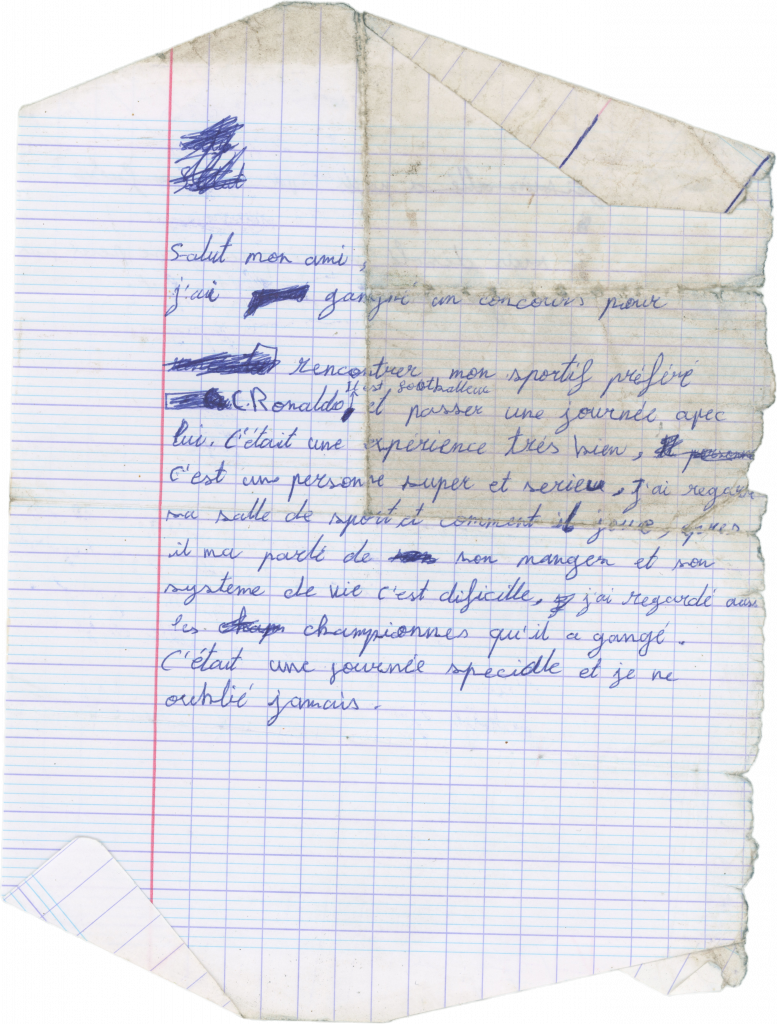 Salut mon ami,
j'ai gangné un concours pour
rencontrer mon sportif préféré
il est footballeur
C.Ronaldo, et passer une journée avec
lui. C'était une experience très bien,
c'est un personne super et serieu, j'ai regardé
sa salle de sport et comment il joue, après
il ma parlé de son manger et son
systeme de vie c'est dificille, j'ai regardé aussi
les championnes qu'il a gangé.
C'était une journée speciale et je ne
oublié jamais.